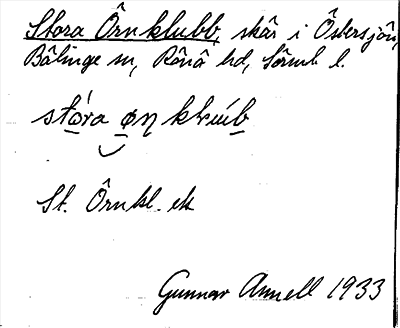 Stora Örnklubb, skär i Östersjön,
Bälinge sn, Rönö hd, Sörml l.
stóra øn klɯúb
St. Örnkl. ek
Gunnar Annell 1933